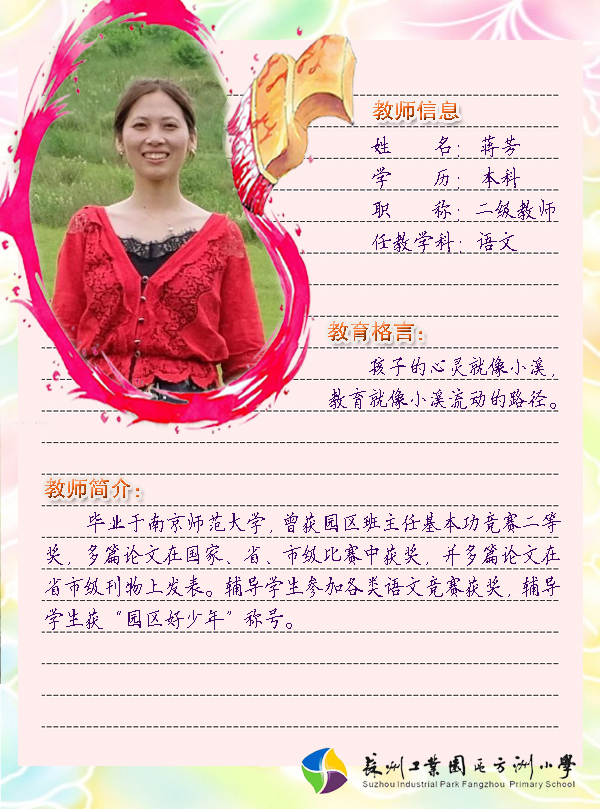 教师信息
姓 名：蒋芳
学 历：本科
职 称：二级教师
任教学科：语文
教育格言：
孩子的心灵就像小溪，
教育就像小溪流动的路径。
教师简介：
毕业于南京师范大学，曾获园区班主任基本功竞赛二等
奖，多篇论文在国家、省、市级比赛中获奖，并多篇论文在
省市级刊物上发表。辅导学生参加各类语文竞赛获奖，辅导
学生获“园区好少年”称号。
苏州工业园区方洲小学
Suzhou Industrial Park Fangzhou Primary School